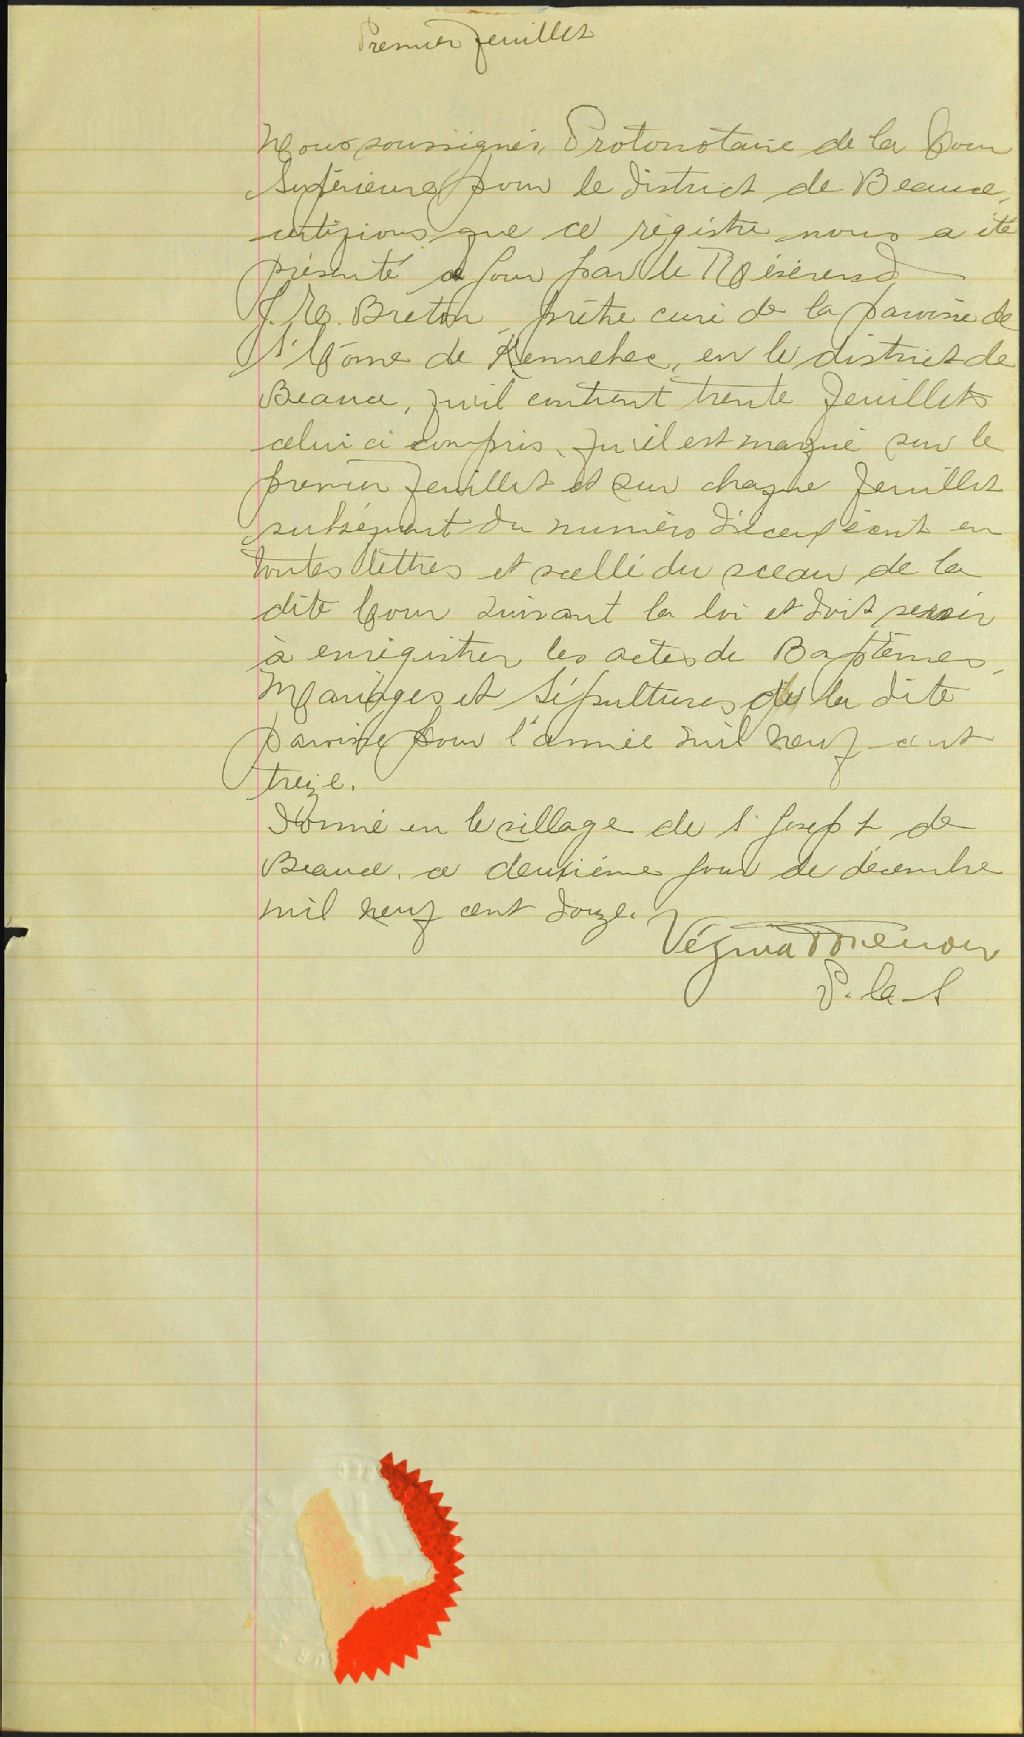 Premier feuillet
Nous soussignés, Protonotaire de la Cour
Supérieure pour le district de Beauce,
certifions que ce régistre nous a été
présenté ce jour par le Révérend
Breton prêtre curé de la paroisse de
St Côme de Kennebec, en le district de
Beauce, qu'il contient trente feuillets
celui ci compris, qu'il est marqué sur le
premier feuillet et sur chaque feuillet
subséquent du numéro d'icelui écrit en
toutes lettres et scellé du sceau de la
dite Cour suivant la loi et doit servir
à enrégistrer les actes de Baptêmes,
Mariages et Sépultures de la dite
paroisse pour l'année mil neuf cent
treize.
Donné en le village de St Joseph de
Beauce, ce deuxième jour de décembre
mil neuf cent douze.
Vézina